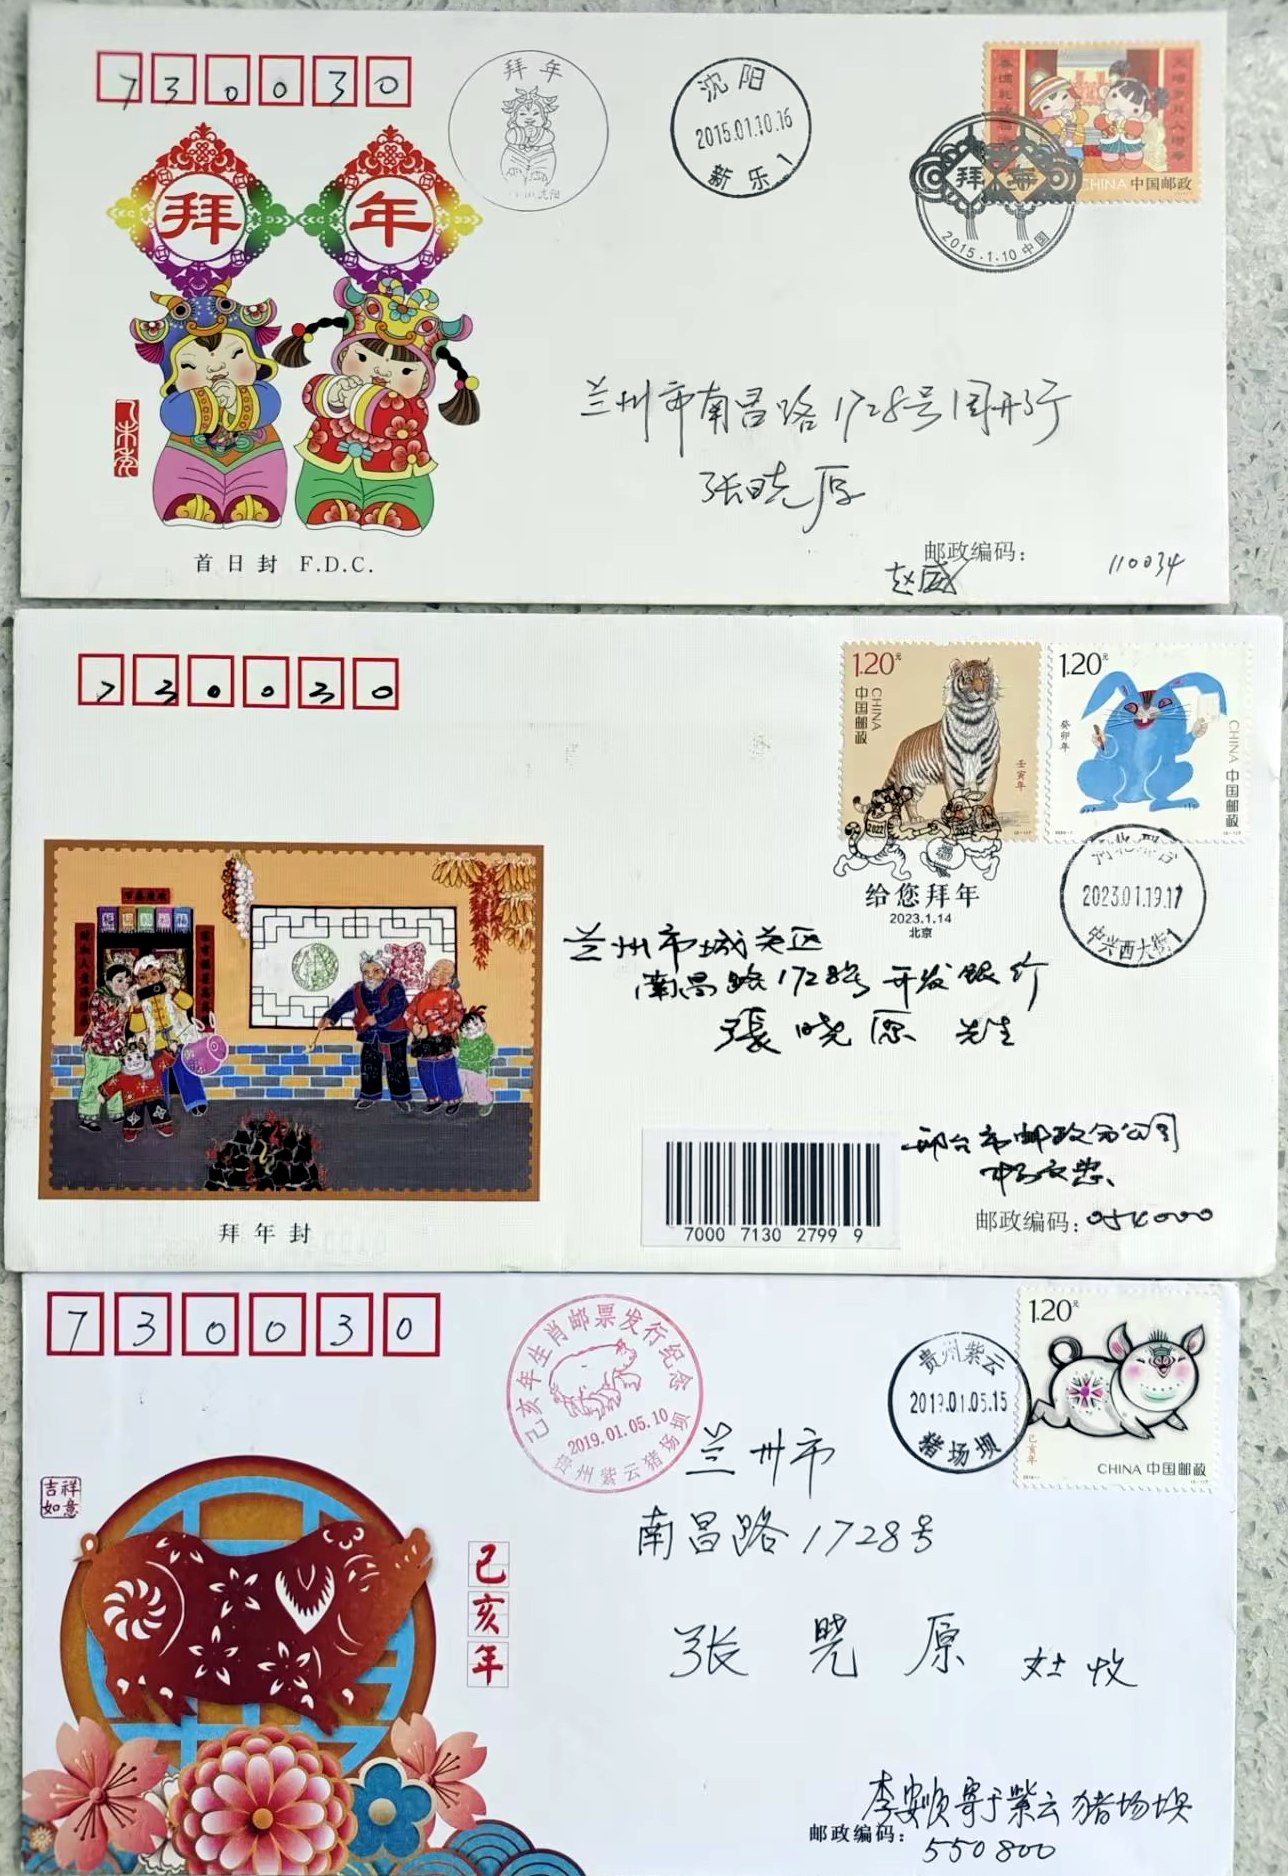 730030
拜年
沈阳
2015.01.10.16
新乐1
中国邮政
CHINA
拜年
2015.1.10 中国
拜年
乙未年
兰州市南昌路1728号国开行
张晓原
首日封 F.D.C.
邮政编码：
110034
赵威
730030
1.20元
中国邮政
CHINA
壬寅年
1.20元
癸卯年
CHINA 中国邮政
给您拜年
2023.1.14
北京
河北邢台
2023.01.19.17
中兴西大街1
兰州市城关区
南昌路1728号 开发银行
張晓原 先生
7000 7130 2799 9
邢台市邮政分公司
邮政编码：054000
拜年封
730030
己亥年生肖邮票发行纪念
2019.01.05.10
贵州紫云猪场坝
贵州紫云
2019.01.05.15
猪场坝
1.20元
己亥年
CHINA 中国邮政
兰州市
南昌路1728号
张晓原
吉祥
如意
己亥年
李安顺寄于紫云猪场坝
邮政编码：
550800